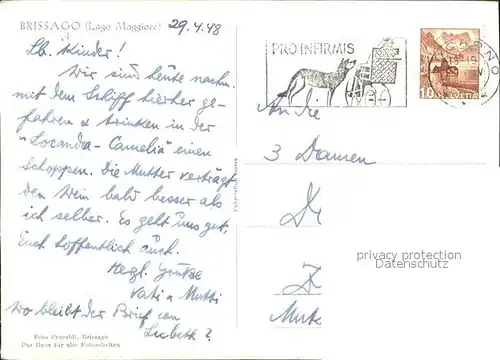 BRISSAGO (Lago Maggiore) 29.4.48
Lb. Kinder!
Wir sind heute nachm.
mit dem Schiff hierher ge-
fahren & trinken in der
"Locanda-Camelia" einen
Schoppen. Die Mutter verträgt
den Wein bald besser als
ich selber. Es geht uns gut,
Euch hoffentlich auch.
Hegl. Grüsse
Vati u Mutti
Wo bleibt der Brief von
Lisbeth?
Foto Pancaldi, Brissago
Das Haus für alle Fotoarbeiten
PRO INFIRMIS
10
HELVETIA
An die
3 Damen
privacy protection
Datenschutz